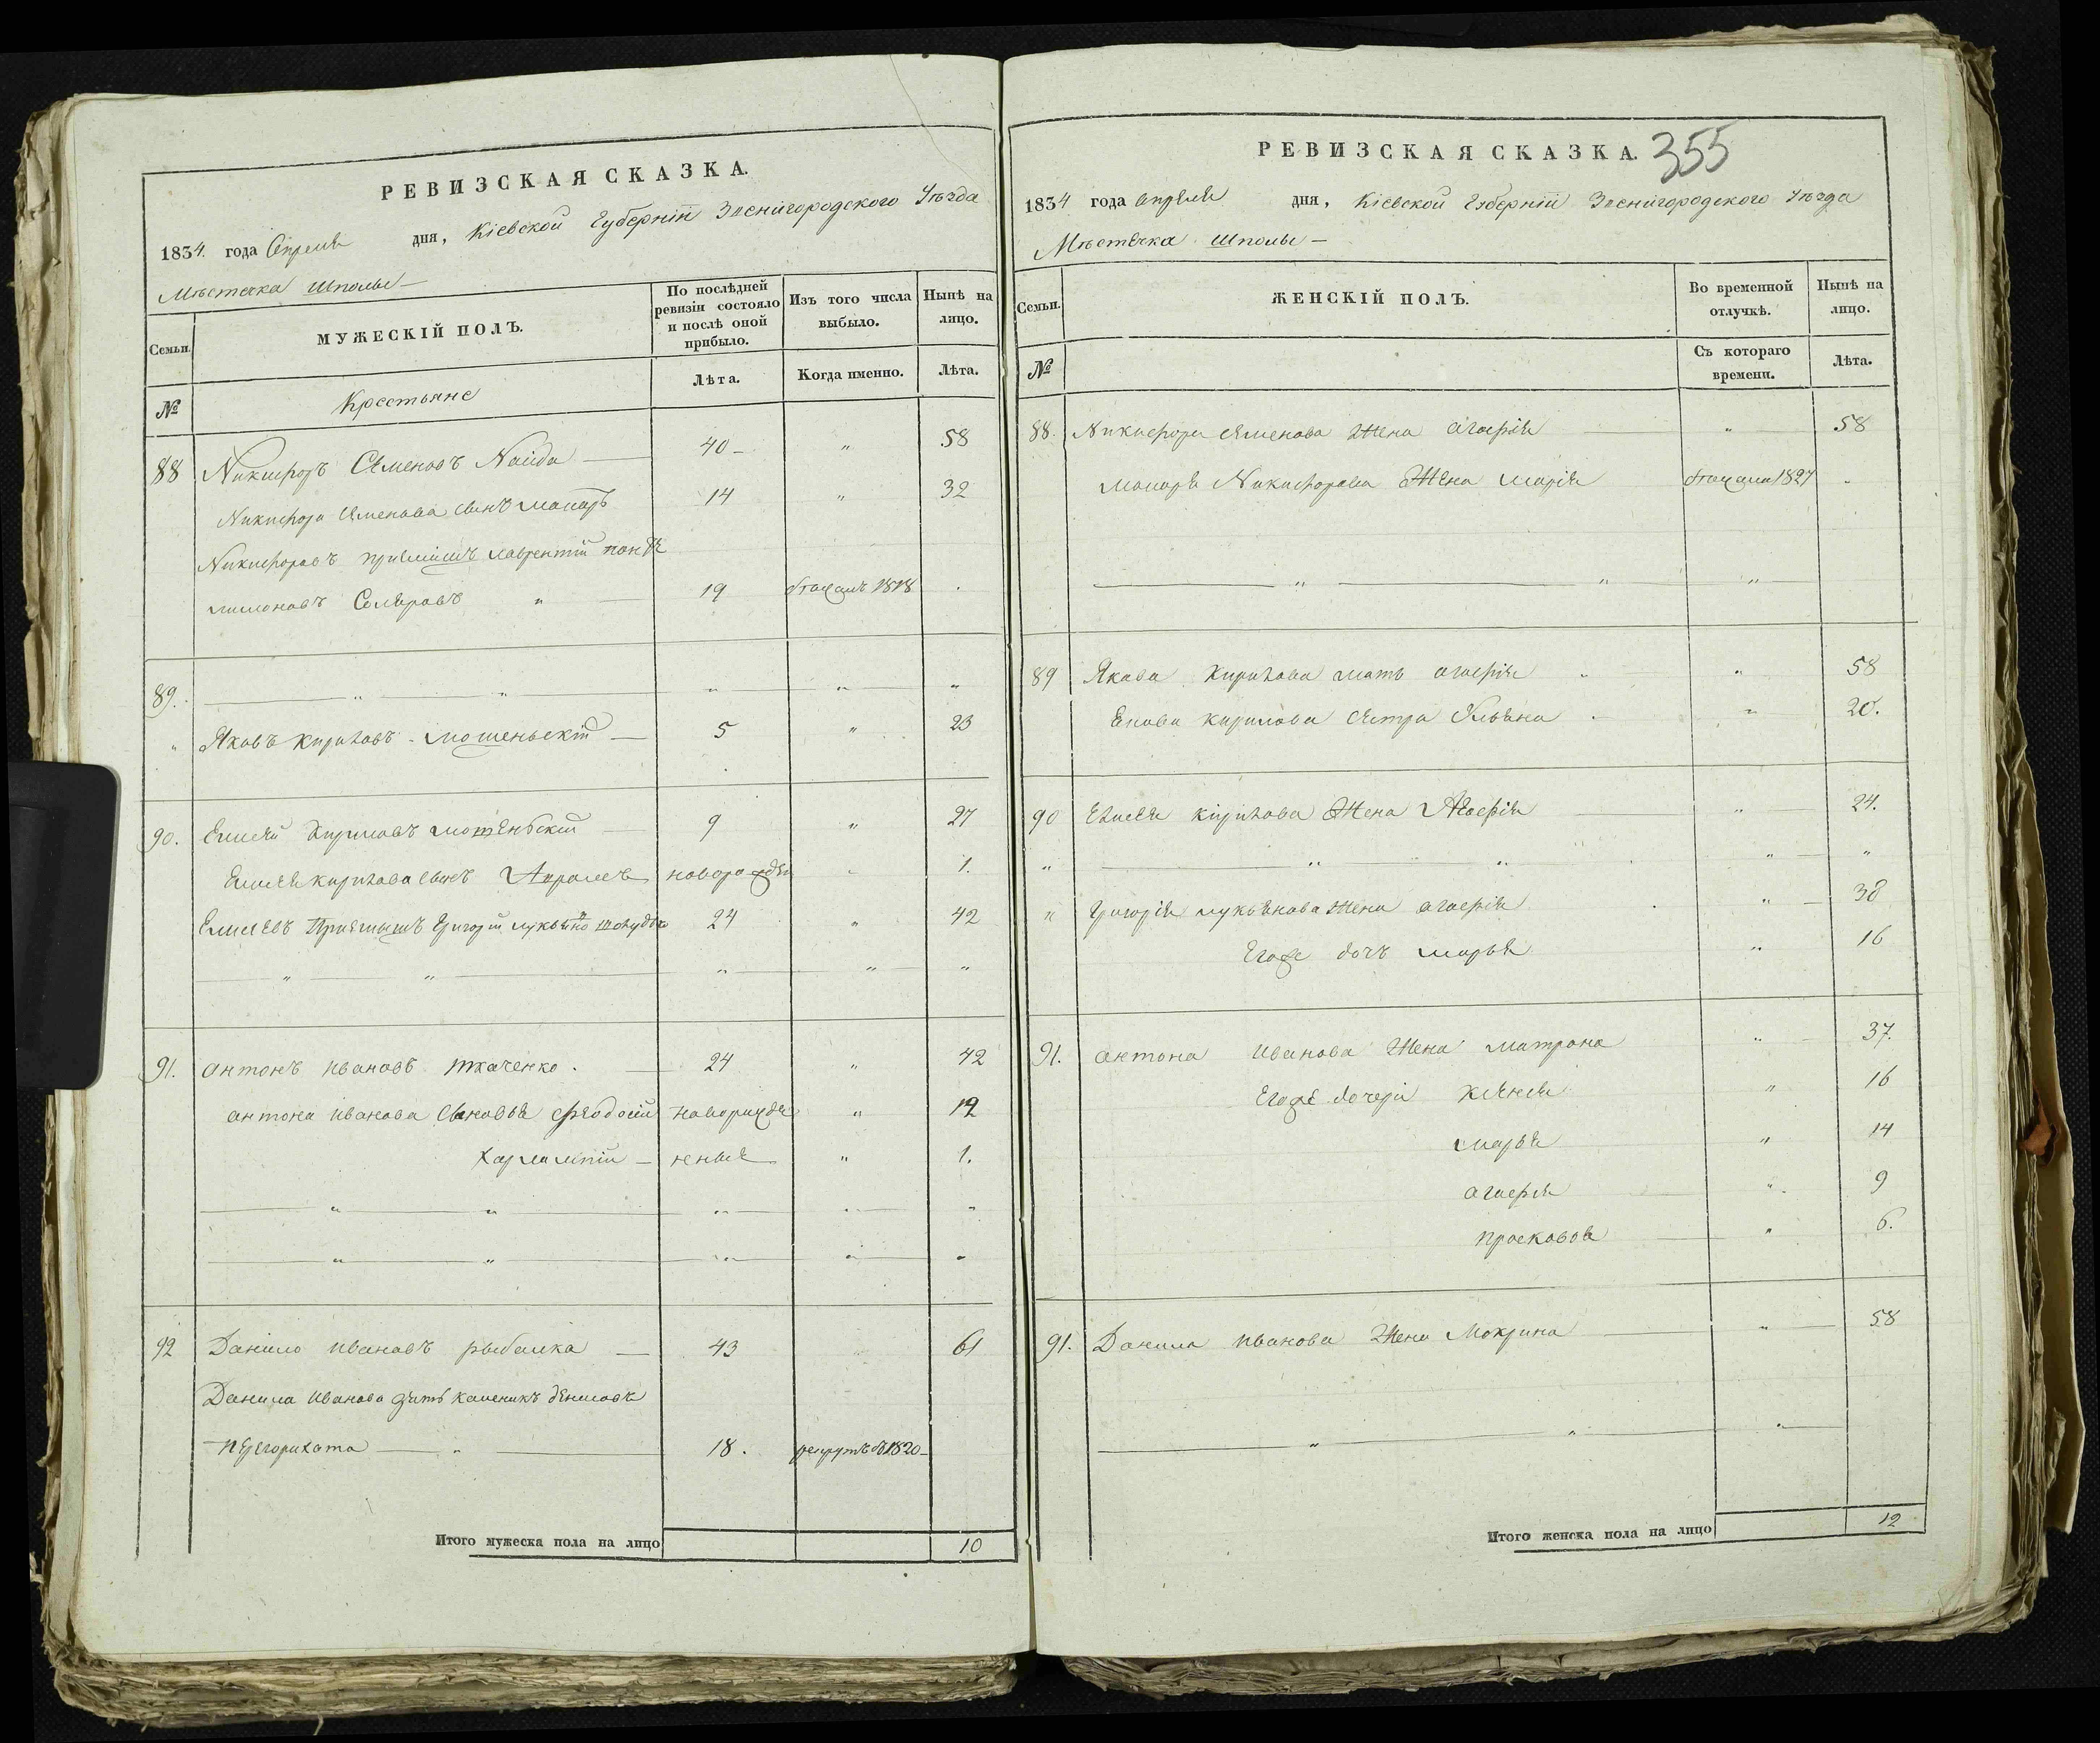 РЕВИЗСКАЯ СКАЗКА.
1834. года Апреля дня, Кіевской Губерніи Звенигородского Уѣзда
Мѣстечка Шполы —
Семьи.
МУЖЕСКІЙ ПОЛЪ.
По послѣдней ревизіи состояло и послѣ оной прибыло.
Изъ того числа выбыло.
Нынѣ на лицо.
№
Крестьяне
Лѣта.
Когда именно.
Лѣта.
88 Никифоръ Семеновъ Найда — 40 — " 58
Никифора Семенова сынъ Макаръ 14 " 32
Никифоровъ приемышъ Лаврентий
Сидоровъ " — 19 бѣжалъ 1818 .
89. — " — " — " — " — "
" Яковъ Кириловъ - Мошеньскій — 5 " 23
90. Елисей Кириловъ Мошеньскій — 9 " 27
Елисея Кирилова сынъ новорожден " 1.
Елисеевъ Приемышъ Григорий 24 " 42
— " — " — " — " — "
91. Антонъ Ивановъ Ткаченко . — 24 " 42
Антона Иванова сыновья Феодосій новорожде " 12
Харлампій — нные " 1.
— " — " — " — " — "
— " — " — " — " — "
92 Данило Ивановъ рыбалка — 43 61
Данила Иванова зять
— " — 18. рекрутъ въ 1820 —
Итого мужеска пола на лицо 10
РЕВИЗСКАЯ СКАЗКА. 355
1834 года Апреля дня, Кіевской Губерніи Звенигородского Уѣзда
Мѣстечка Шполы —
Семьи.
ЖЕНСКІЙ ПОЛЪ.
Во временной отлучкѣ.
Нынѣ на лицо.
№
Съ котораго времени.
Лѣта.
88. Никифора Семенова Жена Агафія — " 58
Макара Никифорова Жена Марія бѣжала 1827 .
— " — " — "
89 Якова Кирилова мать Агафія " " 58
Якова Кирилова сестра Ульяна . " 20.
90 Елисея Кирилова Жена Агафія — " 24.
" — " — " . " — "
" Григорія Лукьянова Жена Агафія . " — 38
Егоже дочъ Марья " 16
91. Антона Иванова Жена Матрона " 37.
Егоже дочери Ксенія " 16
Марья " 14
Агафія " 9
Просковья " 6.
91. Данила Иванова Жена Мокрина — " — 58
— " — " — "
Итого женска пола на лицо 12